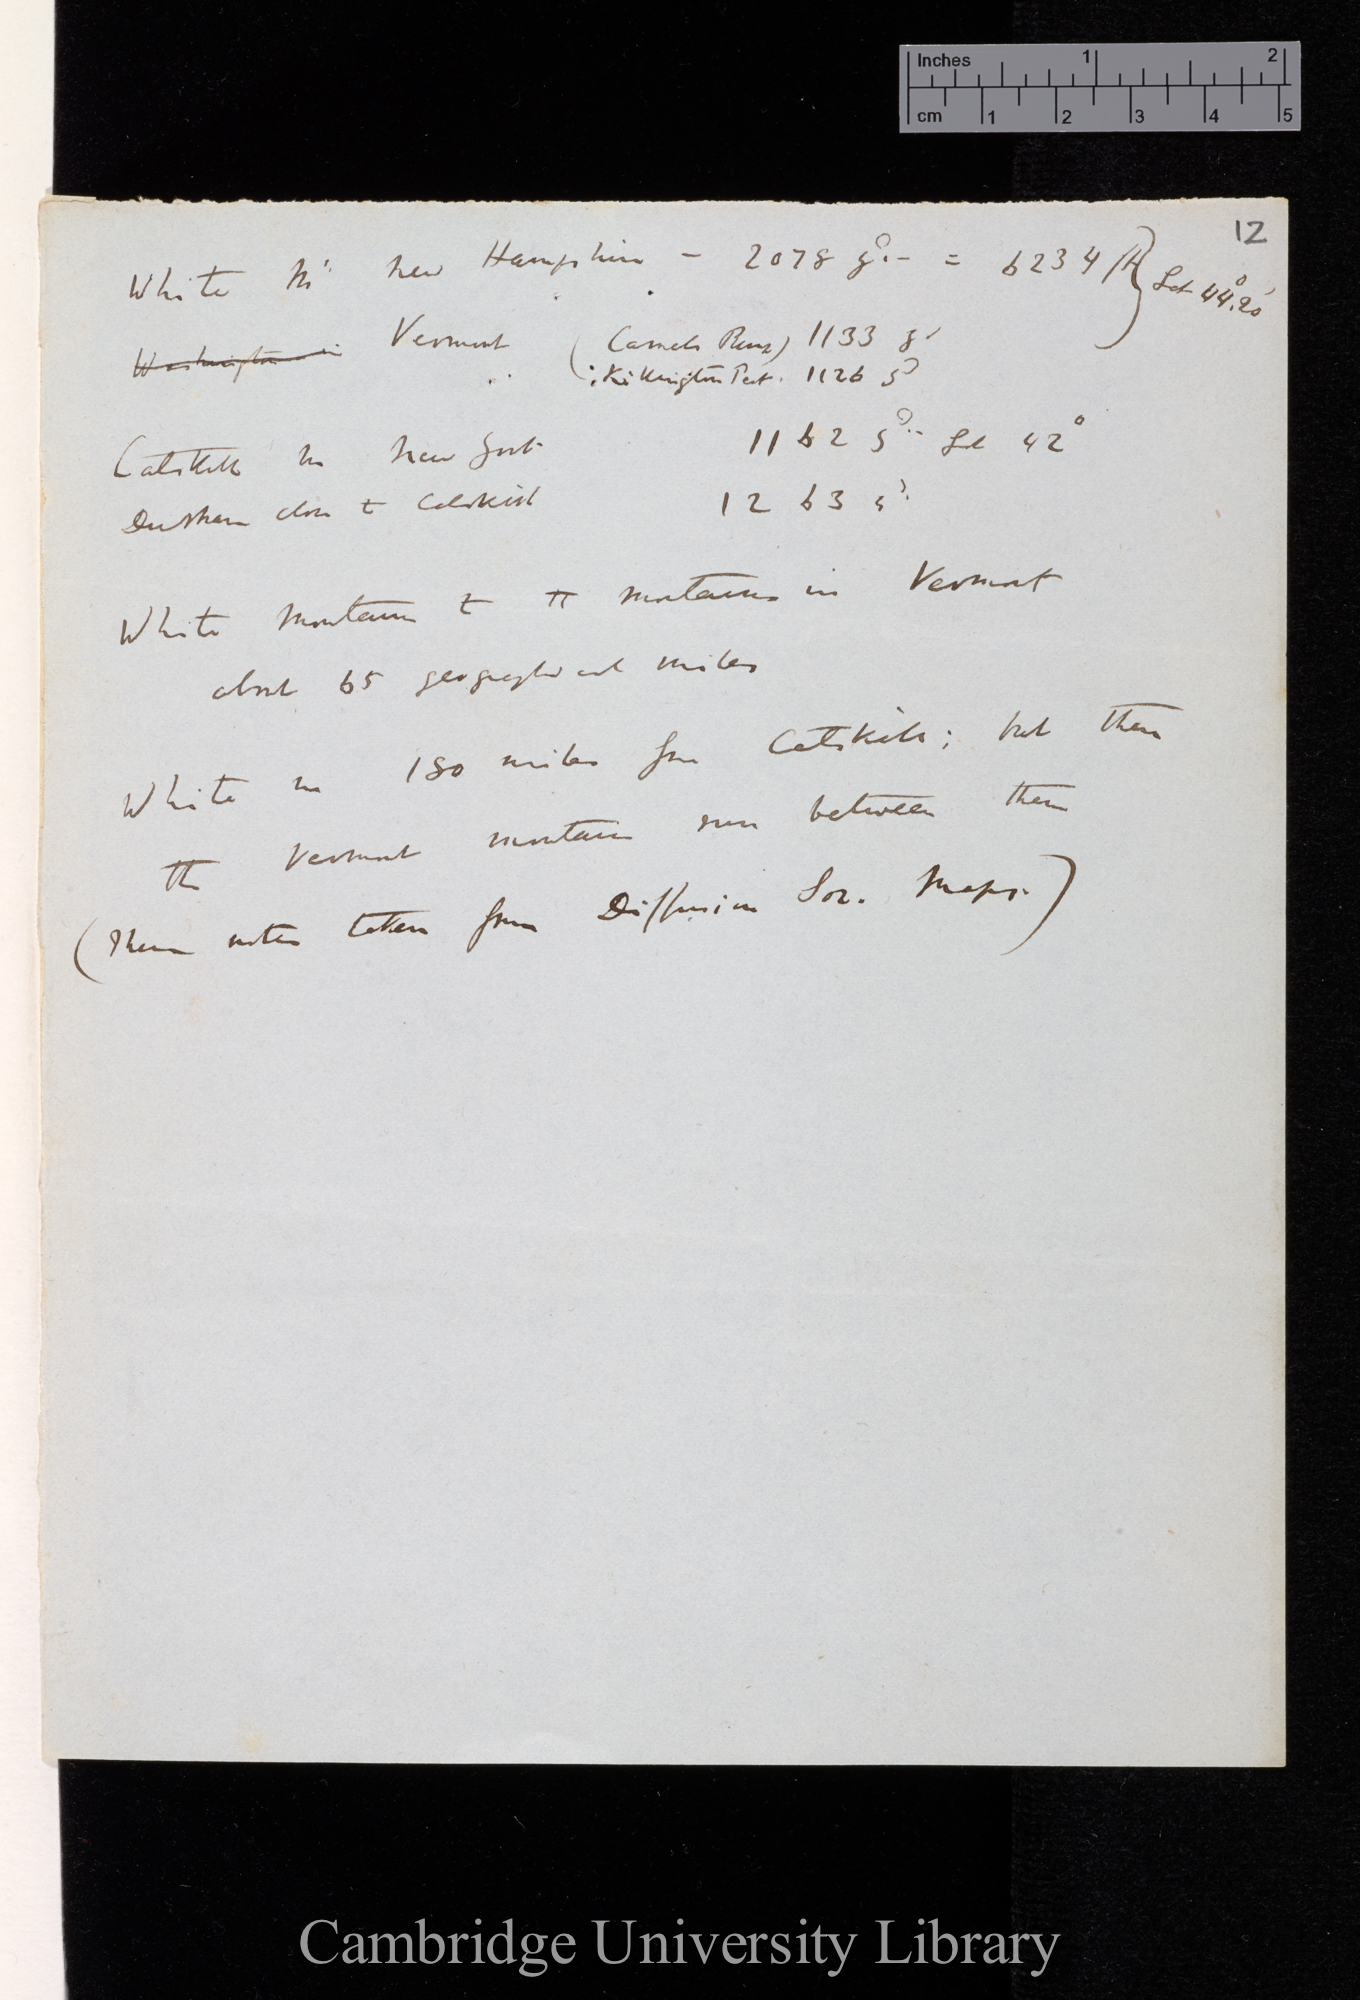 Inches 1 2
cm 1 2 3 4 5
12
White Mⁿ New Hampshire – 2078 yds – = 6234 ft } Lat 44°.20'
Washington in Vermont (Camels Rump) 1133 yd
Killington Peak. 1126 yd
Catskill Mn New York 1162 yd Lat 42°
Durham close to Catskill 1263 yd
White Mountains to the mountains in Vermont
about 65 geographical miles
White Mn 180 miles from Catskill; but then
the Vermont mountains run between them
(These notes taken from Diffusion Soc. Maps.)
Cambridge University Library